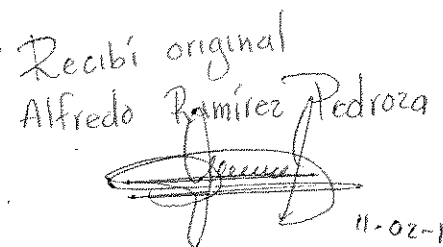 Recibí original
Alfredo Ramírez Pedroza
11-02-1